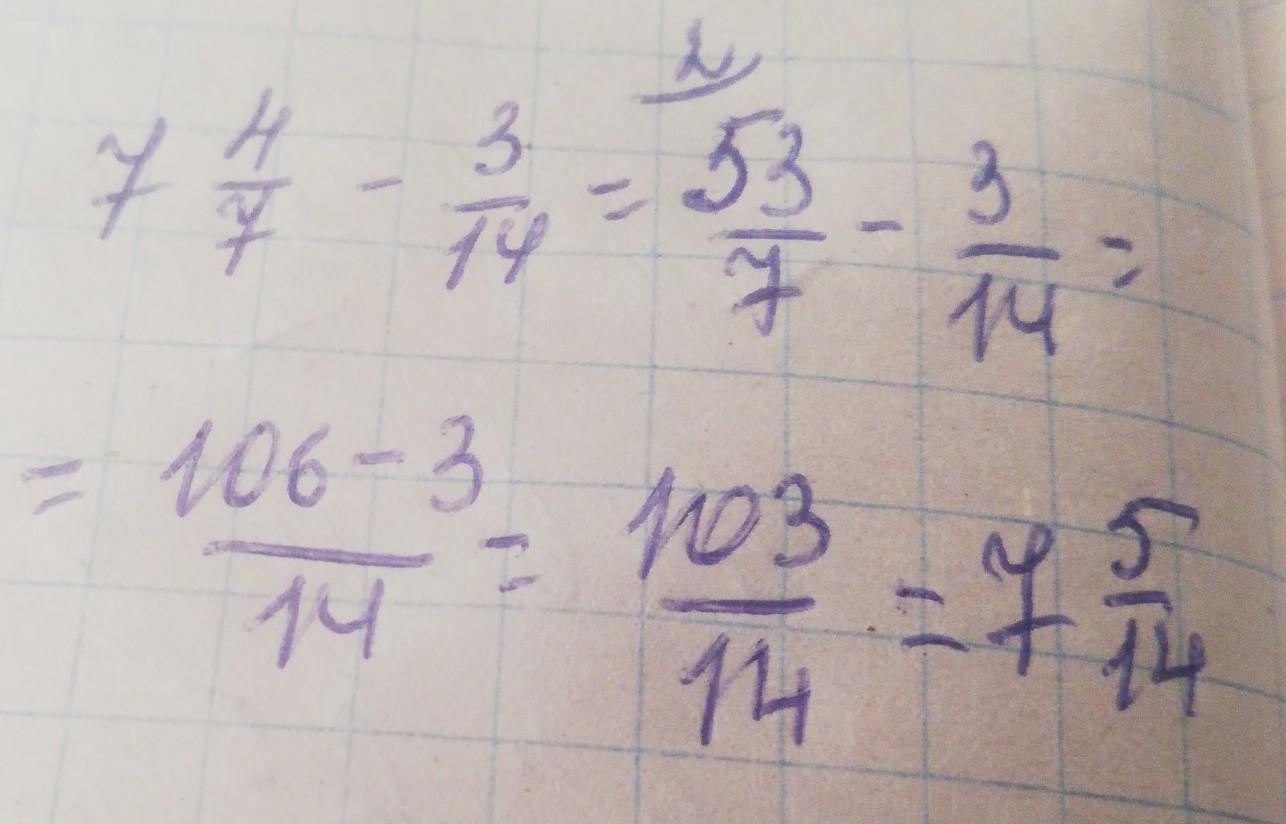 7 4/7 - 3/14 = 53/7 2 - 3/14 =
= 106-3/14 = 103/14 = 7 5/14